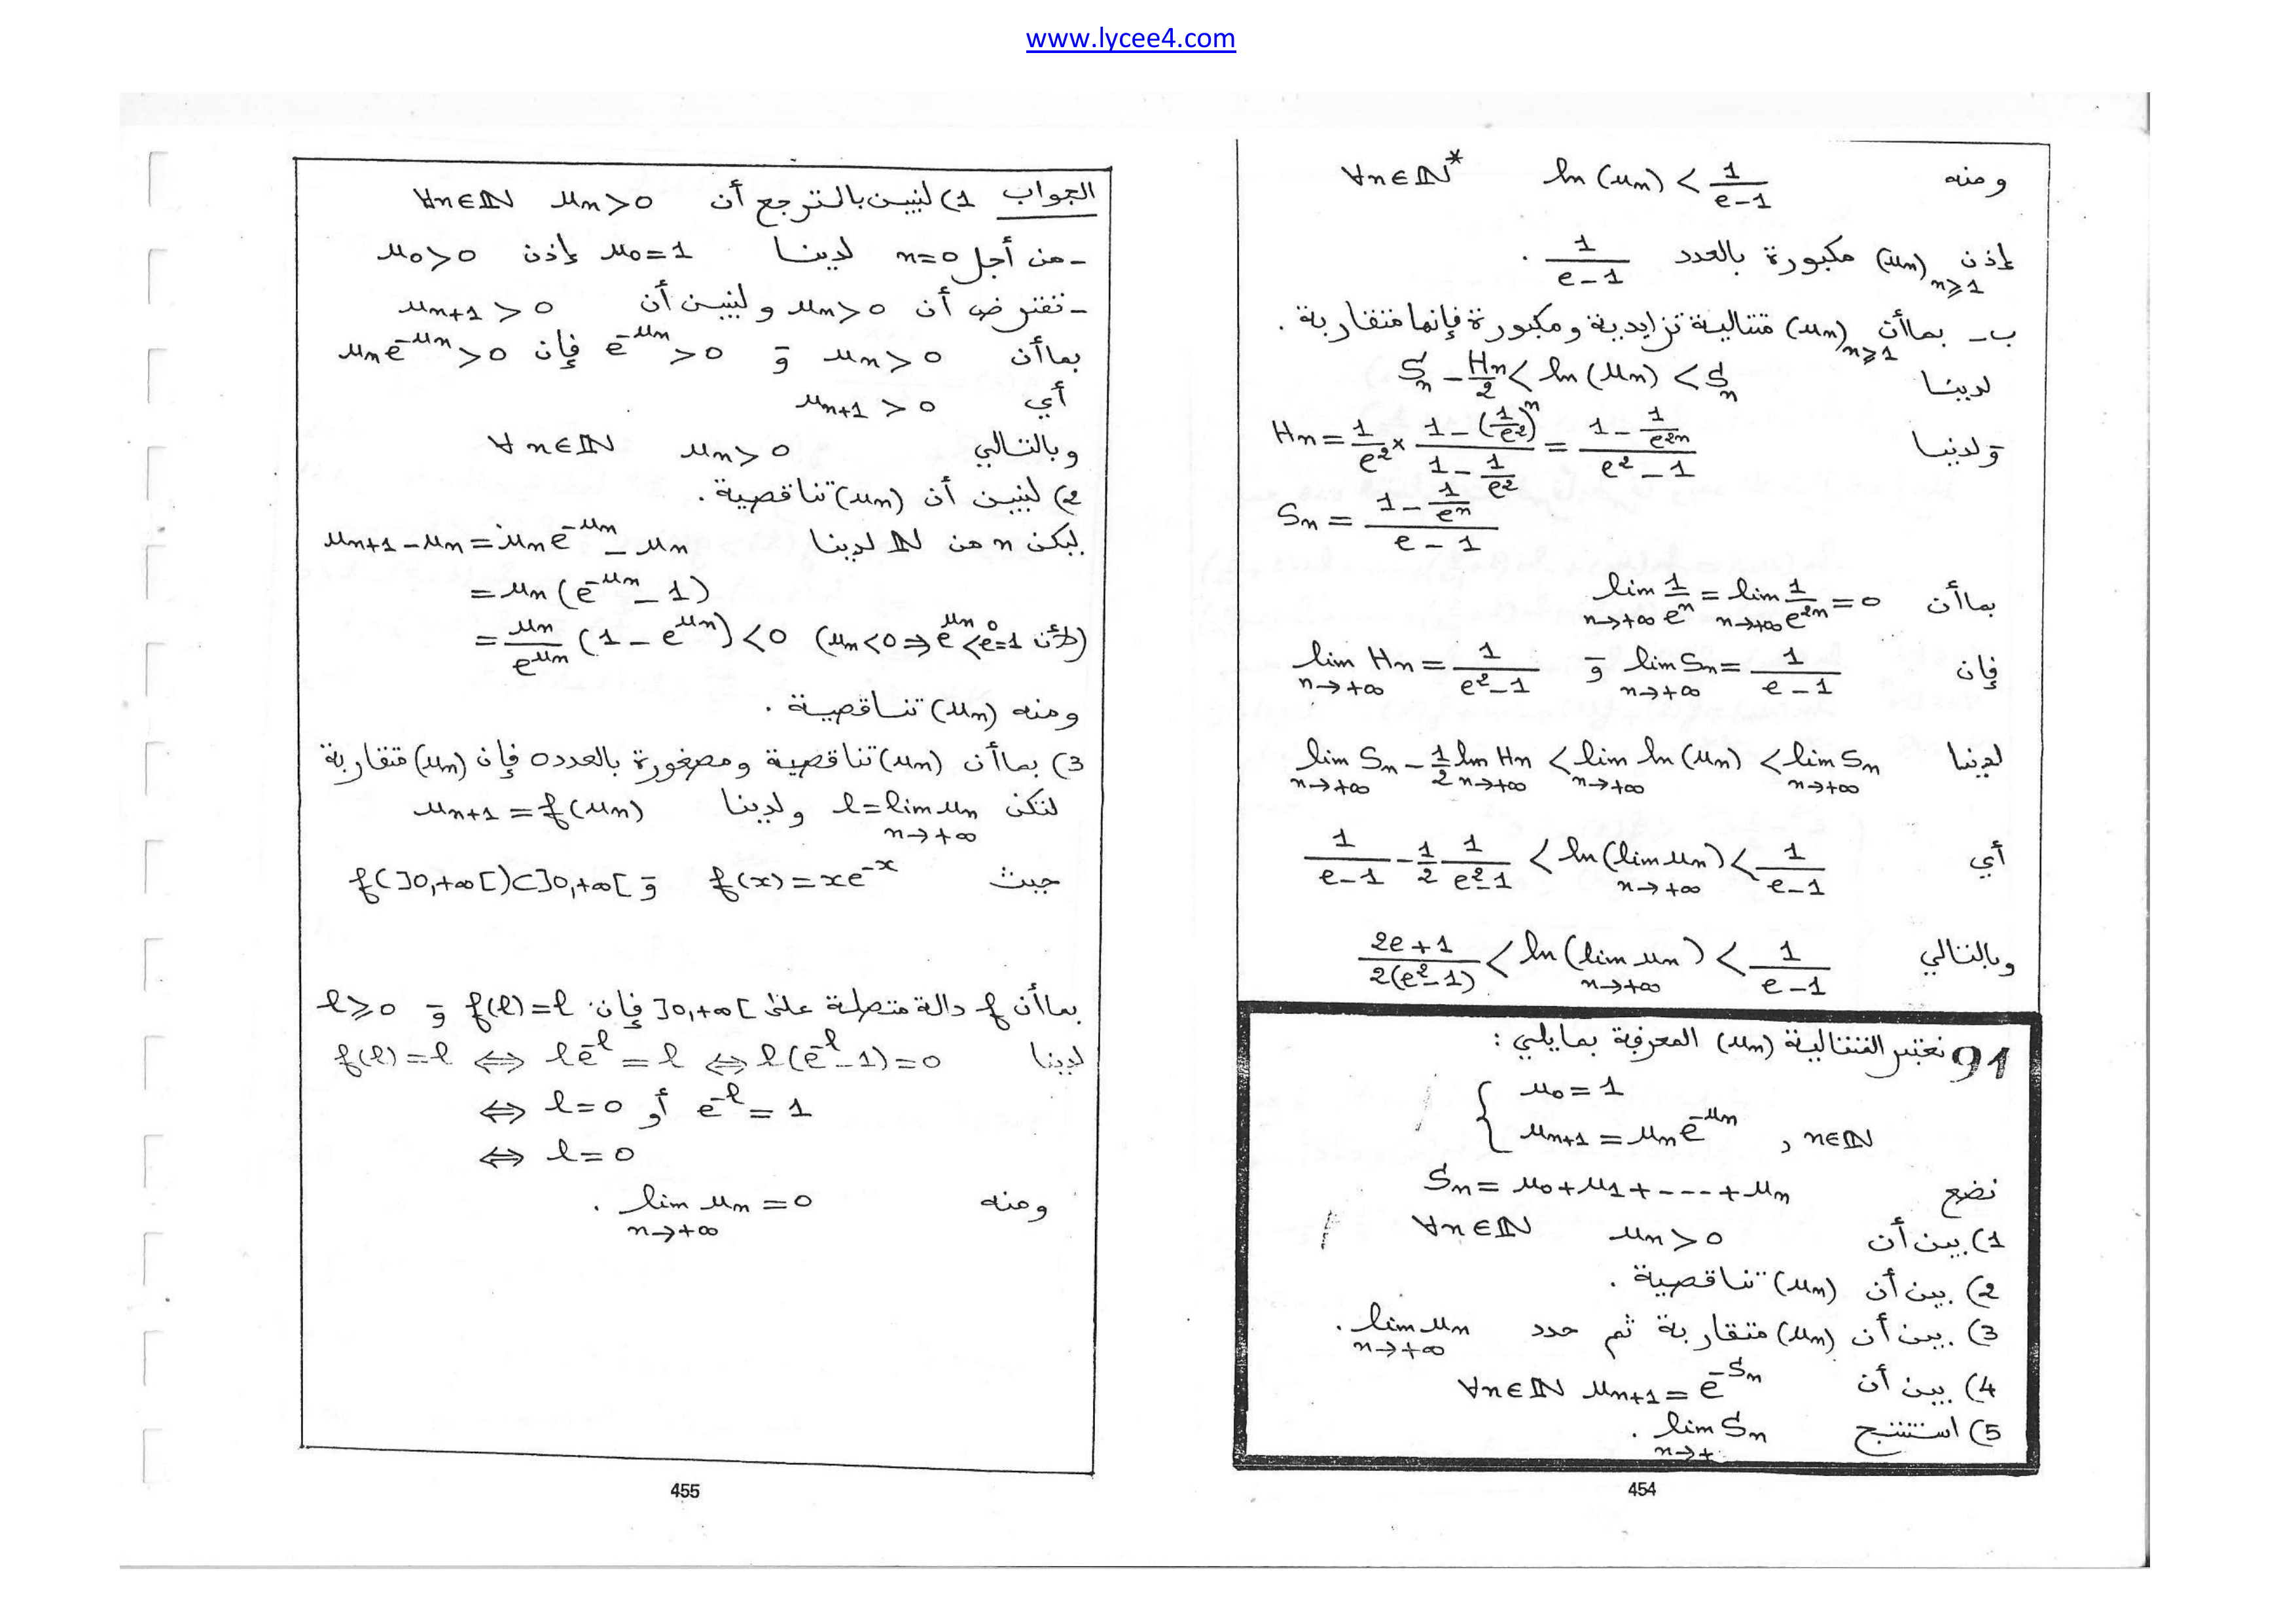 www.lycee4.com
ومنه ∀n∈ℕ* ln(un) < 1/(e-1)
إذن (un)n≥1 مكبورة بالعدد 1/(e-1) .
ب- بماأن (un)n≥1 متتالية تزايدية ومكبورة فإنها متقاربة .
لدينا Sn - Hn/2 < ln(un) < Sn
ولدينا Hn = 1/e² × (1-(1/e²)^n)/(1-1/e²) = (1-1/e^2n)/(e²-1)
Sn = (1-1/e^n)/(e-1)
بماأن lim n→+∞ 1/e^n = lim n→+∞ 1/e^2n = 0
فإن lim n→+∞ Hn = 1/(e²-1) و lim n→+∞ Sn = 1/(e-1)
لدينا lim n→+∞ Sn - 1/2 lim n→+∞ Hn < lim n→+∞ ln(un) < lim n→+∞ Sn
أي 1/(e-1) - 1/2 1/(e²-1) < ln(lim n→+∞ un) < 1/(e-1)
وبالتالي (2e+1)/(2(e²-1)) < ln(lim n→+∞ un) < 1/(e-1)
91 نعتبر المتتالية (un) المعرفة بمايلي :
{ u0 = 1
un+1 = un e^-un , n∈ℕ
نضع Sn = u0+u1+----+un
1) بين أن un > 0 ∀n∈ℕ
2) بين أن (un) تناقصية .
3) بين أن (un) متقاربة ثم حدد lim n→+∞ un .
4) بين أن ∀n∈ℕ un+1 = e^-Sn
5) استنتج lim n→+ Sn .
454
الجواب 1) لنبين بالترجع أن un>0 ∀n∈ℕ
- من أجل n=0 لدينا u0=1 إذن u0>0
- نفترض أن un>0 ولنبين أن un+1 > 0
بماأن un > 0 و e^-un > 0 فإن un e^-un > 0
أي un+1 > 0
وبالتالي un > 0 ∀n∈ℕ
2) لنبين أن (un) تناقصية .
ليكن n من ℕ لدينا un+1 - un = un e^-un - un
= un(e^-un - 1)
= un/e^un (1 - e^un) < 0 (لأن un<0 ⇒ e^un < e^0=1)
ومنه (un) تناقصية .
3) بماأن (un) تناقصية ومصغورة بالعدد 0 فإن (un) متقاربة
لتكن l = lim n→+∞ un ولدينا un+1 = f(un)
حيث f(x) = xe^-x و f(]0,+∞[)⊂]0,+∞[
بماأن f دالة متصلة على ]0,+∞[ فإن f(l)=l و l≥0
لدينا f(l)=l ⇔ le^-l = l ⇔ l(e^-l - 1)=0
⇔ l=0 أو e^-l = 1
⇔ l=0
ومنه lim n→+∞ un = 0 .
455